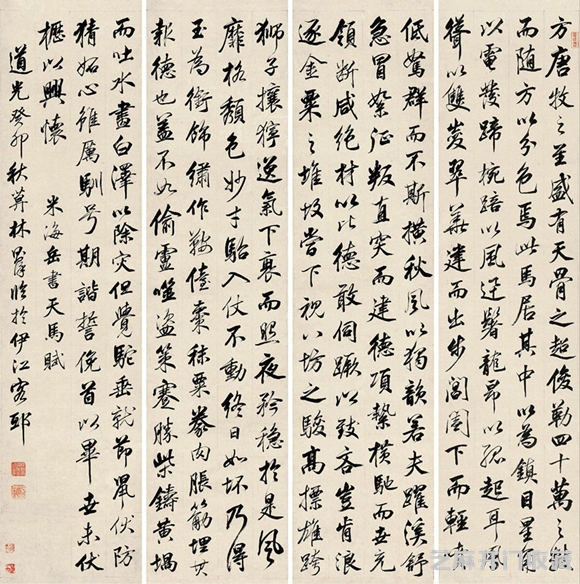 方唐牧之至盛有天骨之超俊勒四十萬之數
而随方以分色焉此馬居其中以為鎮目星角
以電發蹄椀踣以風迅鬐龍昂以孤起耳鳳
聳以雙發翠華建而出步閶闔下而輕噴
低駑群而不嘶橫秋風以獨韻若夫躍溪舒
急冒絮征叛直突而建德項縶橫馳而世充
領斷咸絕材以比德敢伺蹶以致吝豈肯浪
逐金粟之堆故當下視八坊之駿高標雄跨
獅子攘獰逸氣下衰而照夜矜穩於是風
靡格頹色妙才駘入仗不動終日如坏乃得
玉為銜飾繡作鞍儓棗秣粟豢肉脹筋埋其
報德也蓋不如偷盧噬盜策蹇勝柴鑄黃蝸
而吐水畫白澤以除灾但覺駝垂就節鼠伏防
猜妬心雖厲馴号期諧誓俛首以畢世未伏
櫪以興懷 米海岳書天馬賦
道光癸卯秋莫林則徐臨於伊江客邸